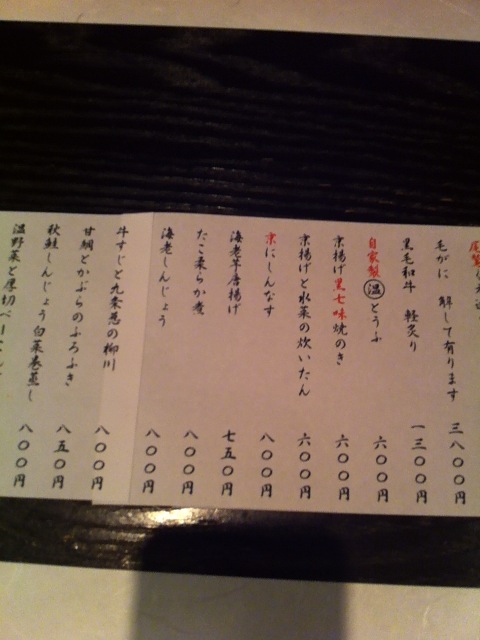 毛がに 解して有ります 三八〇〇円
黒毛和牛 軽炙り 一三〇〇円
自家製 温 とうふ 六〇〇円
京揚げ黒七味焼のき 六〇〇円
京揚げと水菜の炊いたん 六〇〇円
京にしんなす 八〇〇円
海老芋唐揚げ 七五〇円
たこ柔らか煮 八〇〇円
海老しんじょう 八〇〇円
牛すじと九条葱の柳川 八〇〇円
甘鯛とかぶらのふろふき 八五〇円
秋鮭しんじょう白菜巻蒸し 八五〇円
温野菜と厚切ベーコン 八〇〇円